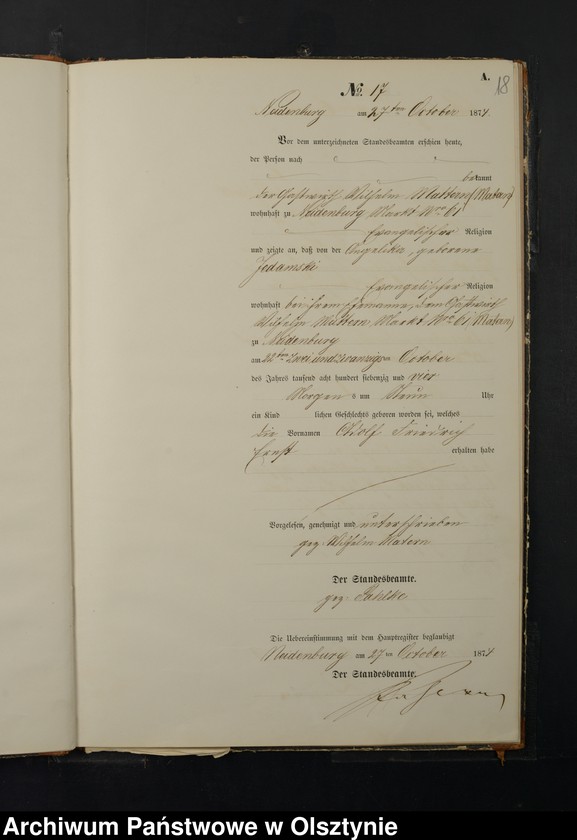 A.
18
No. 17
Neidenburg am 27ten October 1874.
Vor dem unterzeichneten Standesbeamten erschien heute,
der Person nach
bekannt
der Gastwirth Wilhelm Mattern (Matern)
wohnhaft zu Neidenburg Markt No 61
Evangelischer Religion
und zeigte an, daß von der Angelika, geborene
Jedamski
Evangelischer Religion
wohnhaft bei ihrem Ehemanne, dem Gastwirth
Wilhelm Mattern, Markt No 61 (Matern)
zu Neidenburg
am 22ten zwei und zwanzigsten October
des Jahres tausend acht hundert siebenzig und vier
Morgens um Neun Uhr
ein Kind lichen Geschlechts geboren worden sei, welches
die Vornamen Adolf Friedrich
Ernst erhalten habe
Vorgelesen, genehmigt und unterschrieben
gez. Wilhelm Matern
Der Standesbeamte.
gez. Pahlke
Die Uebereinstimmung mit dem Hauptregister beglaubigt
Neidenburg am 27ten October 1874
Der Standesbeamte.
Archiwum Państwowe w Olsztynie